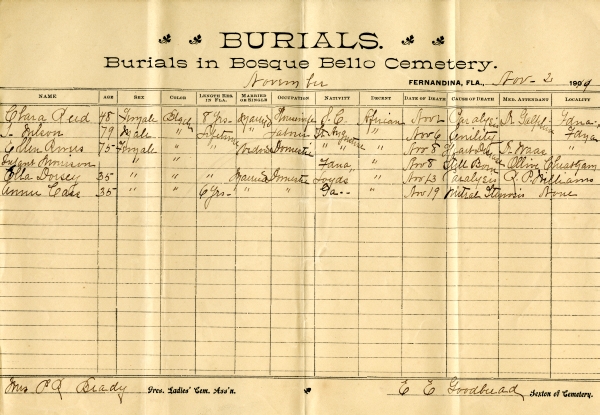 BURIALS.
Burials in Bosque Bello Cemetery.
November FERNANDINA, FLA., Nov-2 1909
NAME AGE SEX COLOR LENGTH RES. IN FLA. MARRIED OR SINGLE OCCUPATION NATIVITY DECENT DATE OF DEATH CAUSE OF DEATH MED. ATTENDANT LOCALITY
Clara Reid 48 Female Black 8 yrs- Married Housewife S. C. African Nov 2 Paralysis Fdna-
79 Male " Lifetime " Laborer St Augustine " Nov 6 Senility " Fdna
Ellen 75- Female " " Widowed Domestic " " " Nov 8 Heart Disease "
Infant Morrison " " Fdna " Nov 8 Still Born Olive Cheatham
Ella Dorsey 35- " " Married Domestic " Nov 13 Paralysis R. P. Williams
Annie Case 35- " " 6 yrs- " " Ga-- " Nov 19 Mitral None
Mrs P. R Brady Pres. Ladies' Cem. Ass'n. E E Goodbread Sexton of Cemetery.